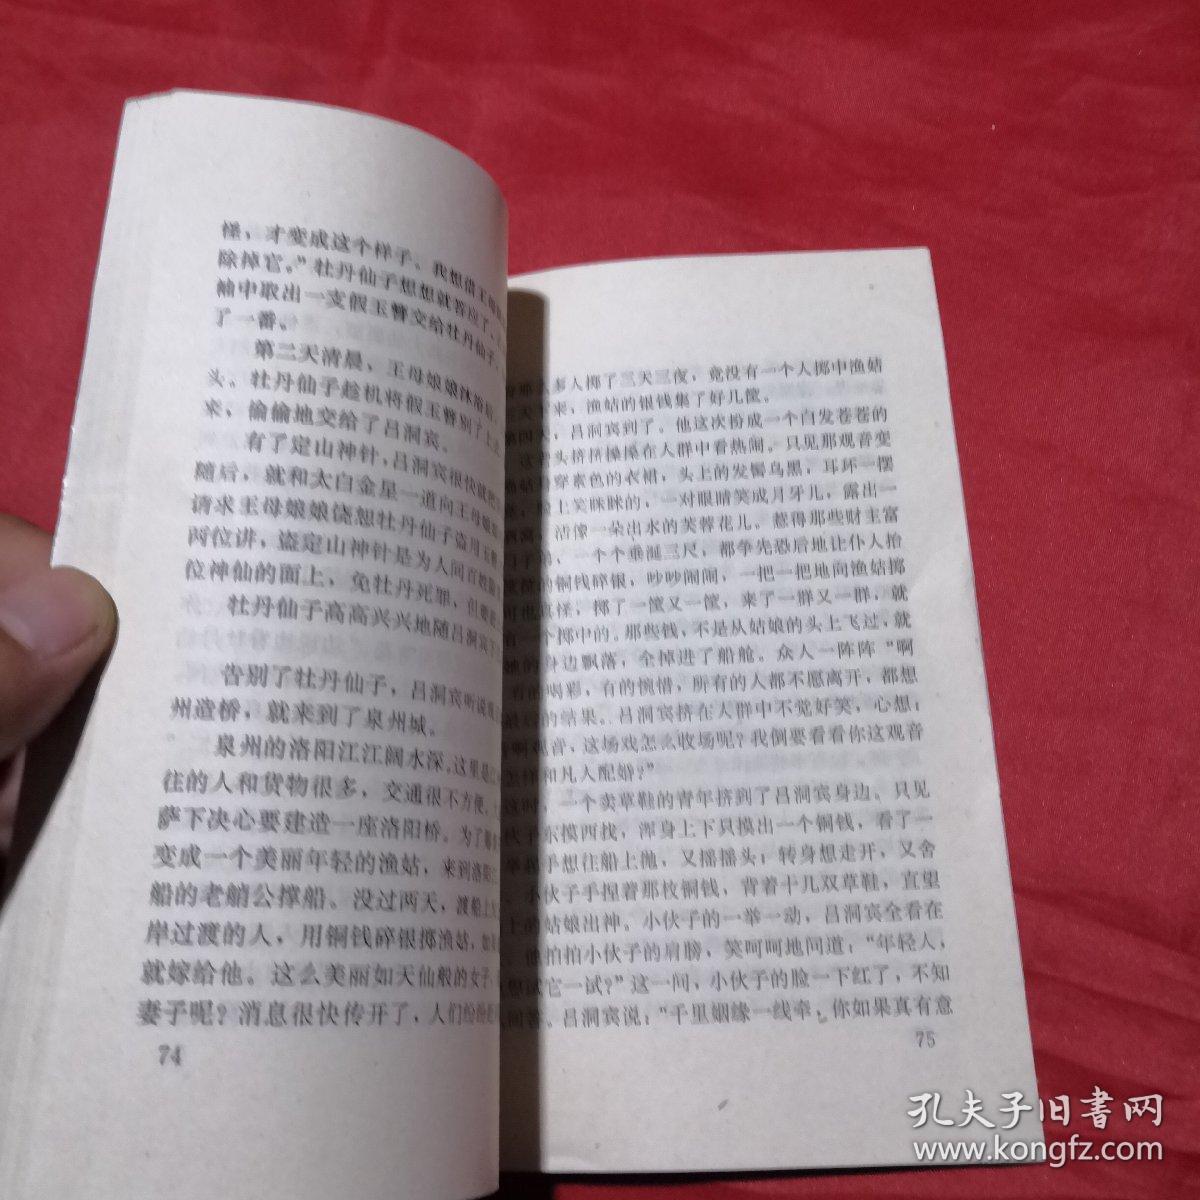 怪，才变成这个样子。我想借王母
除掉它。”牡丹仙子想想就答应了。
袖中取出一支假玉簪交给牡丹仙子，
了一番。
第二天清晨，王母娘娘沐浴后，
头。牡丹仙子趁机将假玉簪别了上去
来，偷偷地交给了吕洞宾。
有了定山神针，吕洞宾很快就把
随后，就和太白金星一道向王母娘娘
请求王母娘娘饶恕牡丹仙子盗用玉簪
两位讲，盗定山神针是为人间百姓
位神仙的面上，免牡丹死罪，但要把
牡丹仙子高高兴兴地随吕洞宾下
告别了牡丹仙子，吕洞宾听说观
州造桥，就来到了泉州城。
泉州的洛阳江江阔水深。这里是
往的人和货物很多，交通很不方便。
萨下决心要建造一座洛阳桥。为了
变成一个美丽年轻的渔姑，来到洛阳江
船的老艄公撑船。没过两天，渡船上
岸过渡的人，用铜钱碎银掷渔姑，如
就嫁给他。这么美丽如天仙般的女子，
妻子呢？消息很快传开了，人们纷纷
74
多人掷了三天三夜，竟没有一个人掷中渔姑
三天下来，渔姑的银钱集了好几筐。
第四天，吕洞宾到了。他这次扮成一个白发苍苍的
老头挤挤搡搡在人群中看热闹。只见那观音变
渔姑身穿素色的衣裙，头上的发髻乌黑，耳环一摆
脸上笑眯眯的，一对眼睛笑成月牙儿，露出一
酒窝，活像一朵出水的芙蓉花儿。惹得那些财主富
门子弟，一个个垂涎三尺，都争先恐后地让仆人抬
的铜钱碎银，吵吵闹闹，一把一把地向渔姑掷
可也真怪，掷了一筐又一筐，来了一群又一群，就
有一个掷中的。那些钱，不是从姑娘的头上飞过，就
她的身边飘落，全掉进了船舱。众人一阵阵“啊
有的喝彩，有的惋惜，所有的人都不愿离开，都想
最后的结果。吕洞宾挤在人群中不觉好笑，心想：
啊观音，这场戏怎么收场呢？我倒要看看你这观音
怎样和凡人配婚？”
这时，一个卖草鞋的青年挤到了吕洞宾身边。只见
伙子东摸西找，浑身上下只摸出一个铜钱，看了一
举起手想往船上抛，又摇摇头；转身想走开，又舍
小伙子手捏着那枚铜钱，背着十几双草鞋，直望
上的姑娘出神。小伙子的一举一动，吕洞宾全看在
他拍拍小伙子的肩膀，笑呵呵地问道：“年轻人，
想试它一试？”这一问，小伙子的脸一下红了，不知
回答。吕洞宾说：“千里姻缘一线牵，你如果真有意
75
孔夫子旧书网
www.kongfz.com